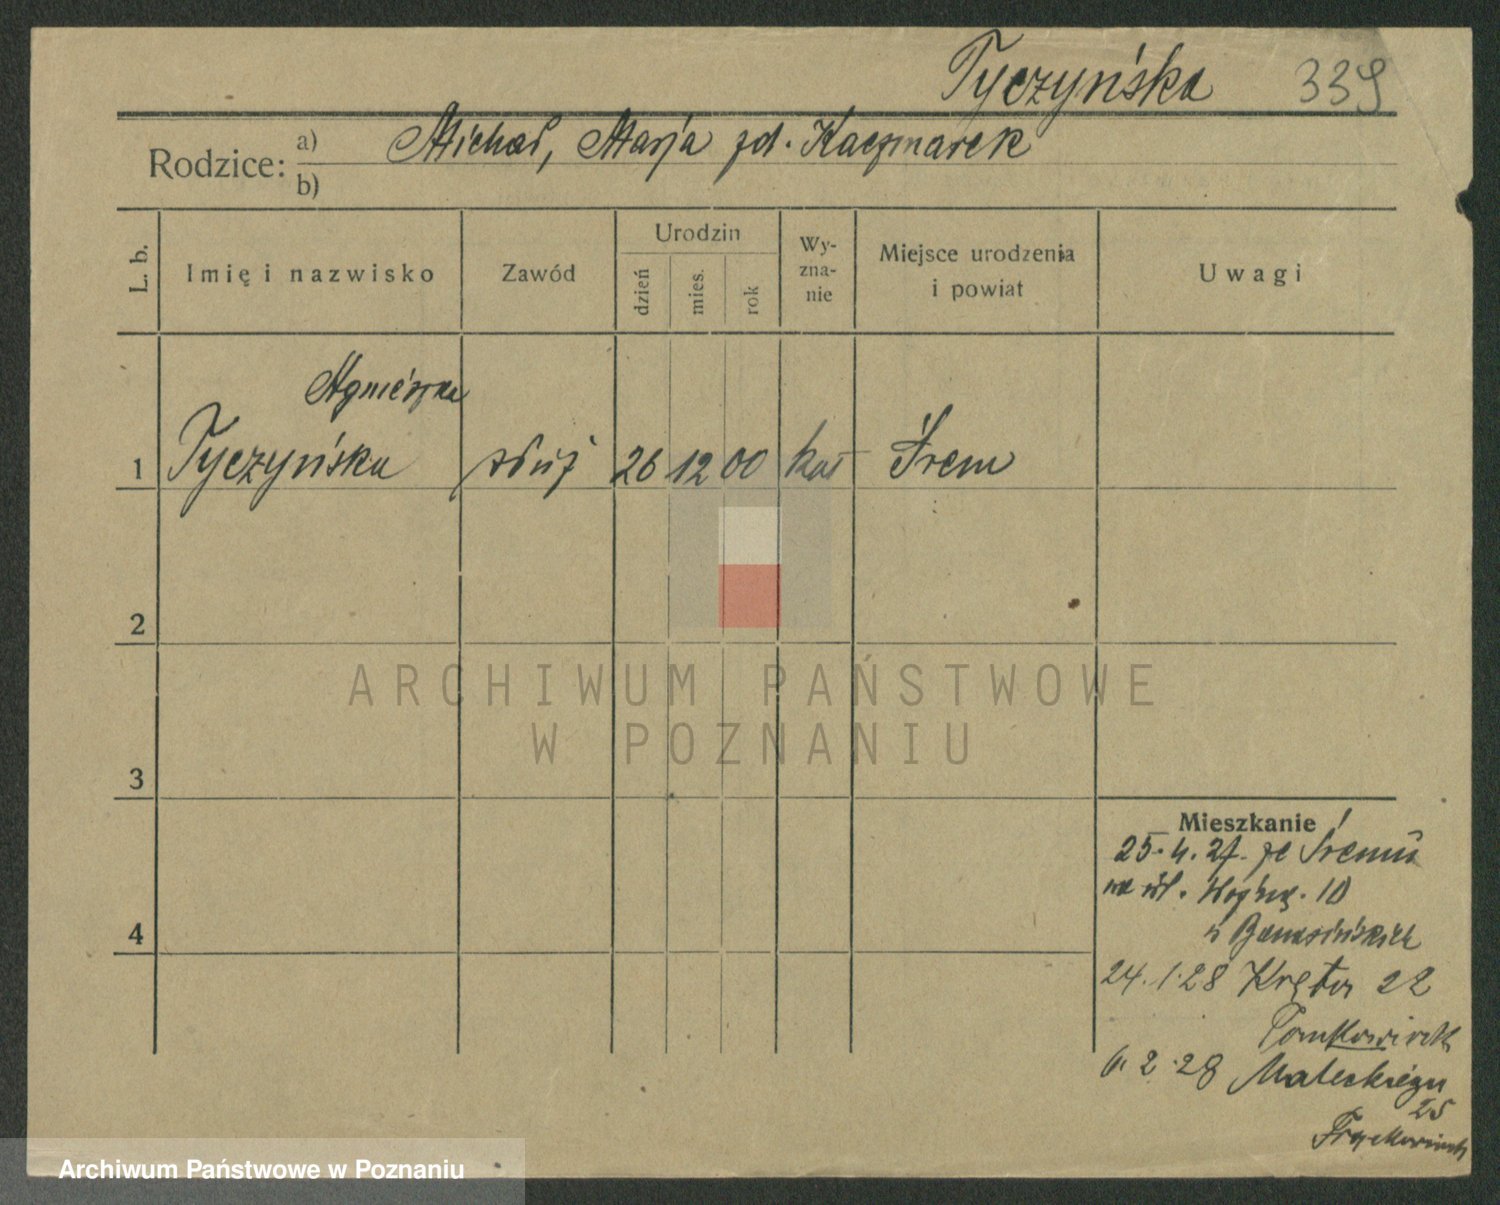 Tyczyńska 339
Rodzice: a) Michał, Marja zd. Kaczmarek
b)
L. b. Imię i nazwisko Zawód Urodzin dzień mies. rok Wy-zna-nie Miejsce urodzenia i powiat Uwagi
Agnieszka
1 Tyczyńska służ 26 12 00 kat Śrem
2
3
4
Mieszkanie
25.4.27. ze Śremu
na ul. 10
u Banasińskich
24.1.28 Kręta 22
6.2.28 Maleckiego
25
ARCHIWUM PAŃSTWOWE
W POZNANIU
Archiwum Państwowe w Poznaniu